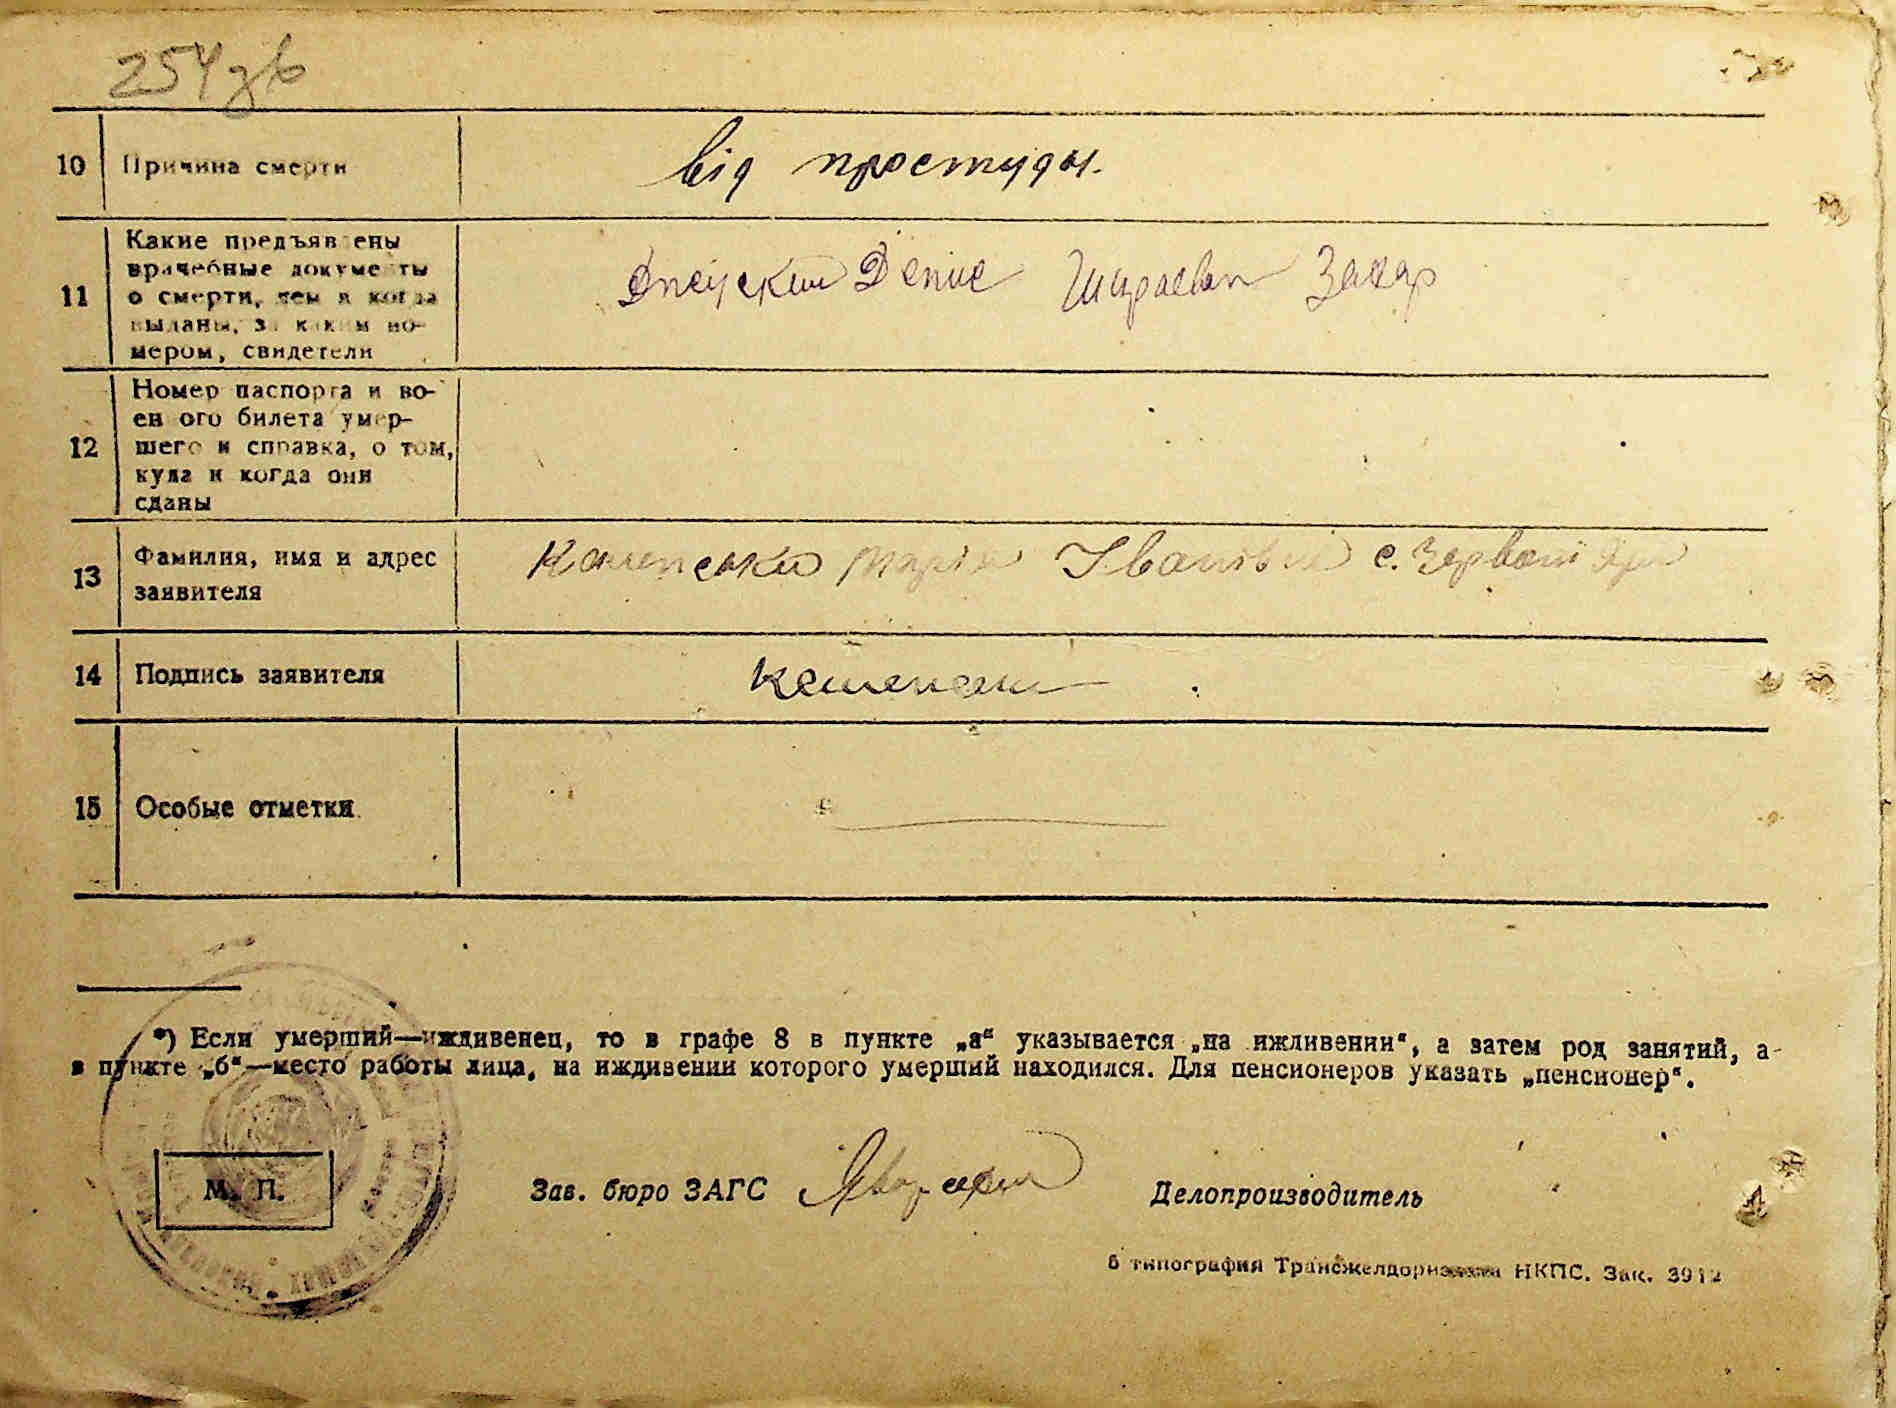 254 зв
10 Причина смерти від простуды.
11 Какие предъявлены
врачебные документы
о смерти, кем и когда
выданы, за каким но-
мером, свидетели
Денис Захар
12 Номер паспорта и во-
ен ого билета умер-
шего и справка, о том,
куда и когда они
сданы
13 Фамилия, имя и адрес
заявителя
Марія Іванівна с. Червоний Яр
14 Подпись заявителя
15 Особые отметки
*) Если умерший—иждивенец, то в графе 8 в пункте „а“ указывается „на иждивении“, а затем род занятий, а
в пункте „б“—место работы лица, на иждивении которого умерший находился. Для пенсионеров указать „пенсионер“.
М. П.
Зав. бюро ЗАГС
Делопроизводитель
6 типография Трансжелдориздата НКПС. Зак. 3912